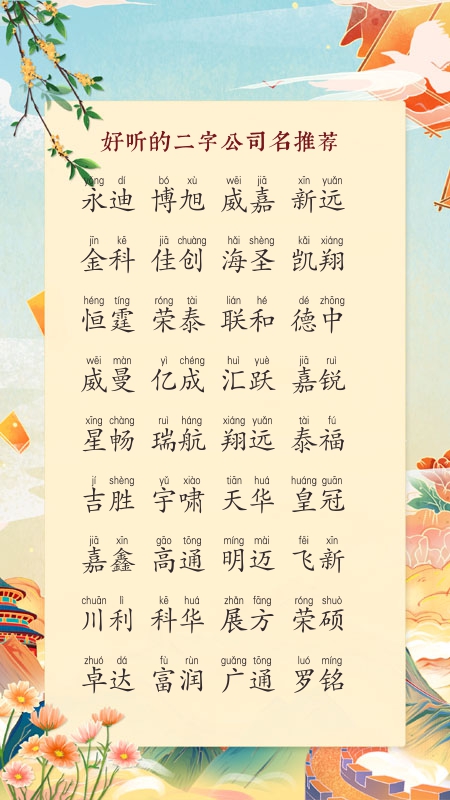 好听的二字公司名推荐
yǒng dí bó xù wēi jiā xīn yuǎn
永迪 博旭 威嘉 新远
jīn kē jiā chuàng hǎi shèng kǎi xiáng
金科 佳创 海圣 凯翔
héng tíng róng tài lián hé dé zhōng
恒霆 荣泰 联和 德中
wēi màn yì chéng huì yuè jiā ruì
威曼 亿成 汇跃 嘉锐
xīng chàng ruì háng xiáng yuǎn tài fú
星畅 瑞航 翔远 泰福
jí shèng yǔ xiào tiān huá huáng guān
吉胜 宇啸 天华 皇冠
jiā xīn gāo tōng míng mài fēi xīn
嘉鑫 高通 明迈 飞新
chuān lì kē huá zhǎn fāng róng shuò
川利 科华 展方 荣硕
zhuó dá fù rùn guǎng tōng luó míng
卓达 富润 广通 罗铭